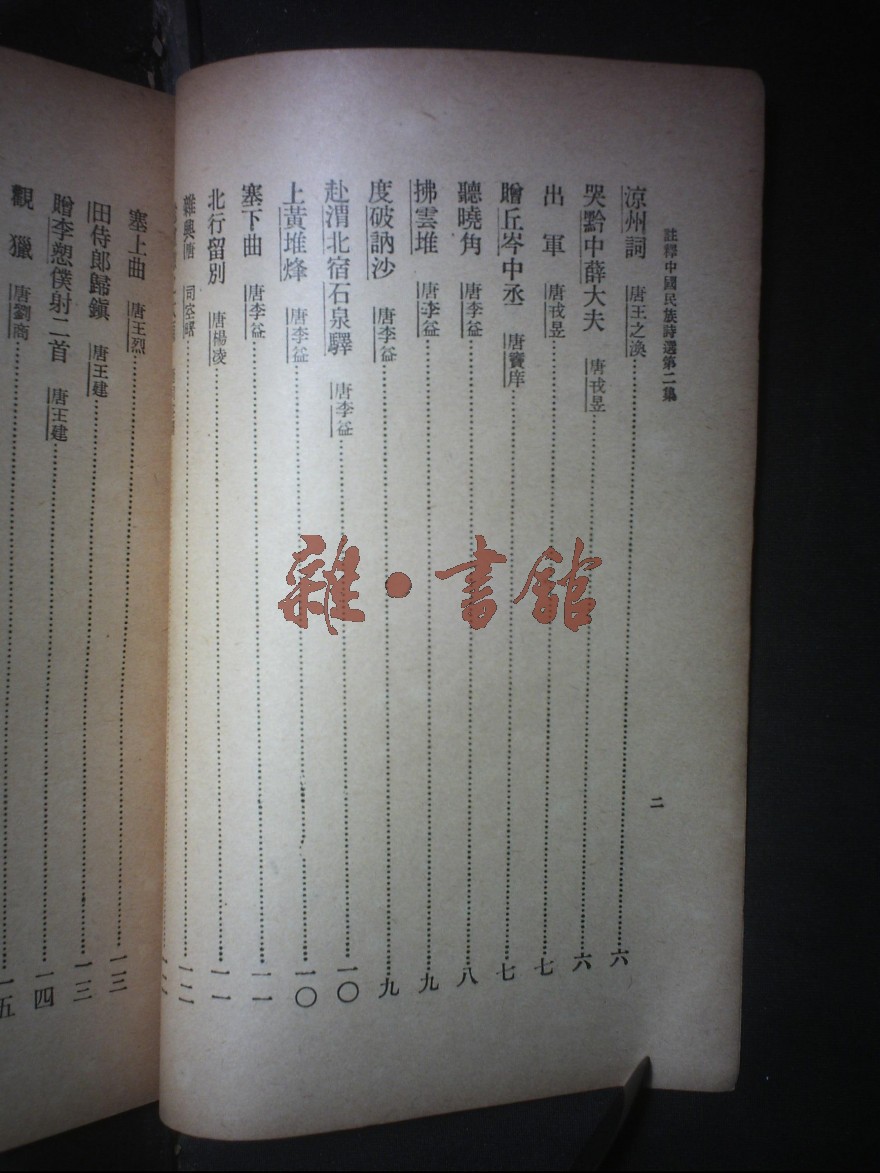 註釋中國民族詩選第二集
二
涼州詞 唐王之渙 六
哭黔中薛大夫 唐戎昱 六
出軍 唐戎昱 七
贈丘岑中丞 唐竇庠 七
聽曉角 唐李益 八
拂雲堆 唐李益 九
度破訥沙 唐李益 九
赴渭北宿石泉驛 唐李益 一〇
上黃堆烽 唐李益 一〇
塞下曲 唐李益 一一
北行留別 唐楊凌 一一
雜興 唐司空曙 一二
塞上曲 唐王烈 一三
田侍郎歸鎮 唐王建 一三
贈李愬僕射二首 唐王建 一四
觀獵 唐劉商 一五
雜·書館